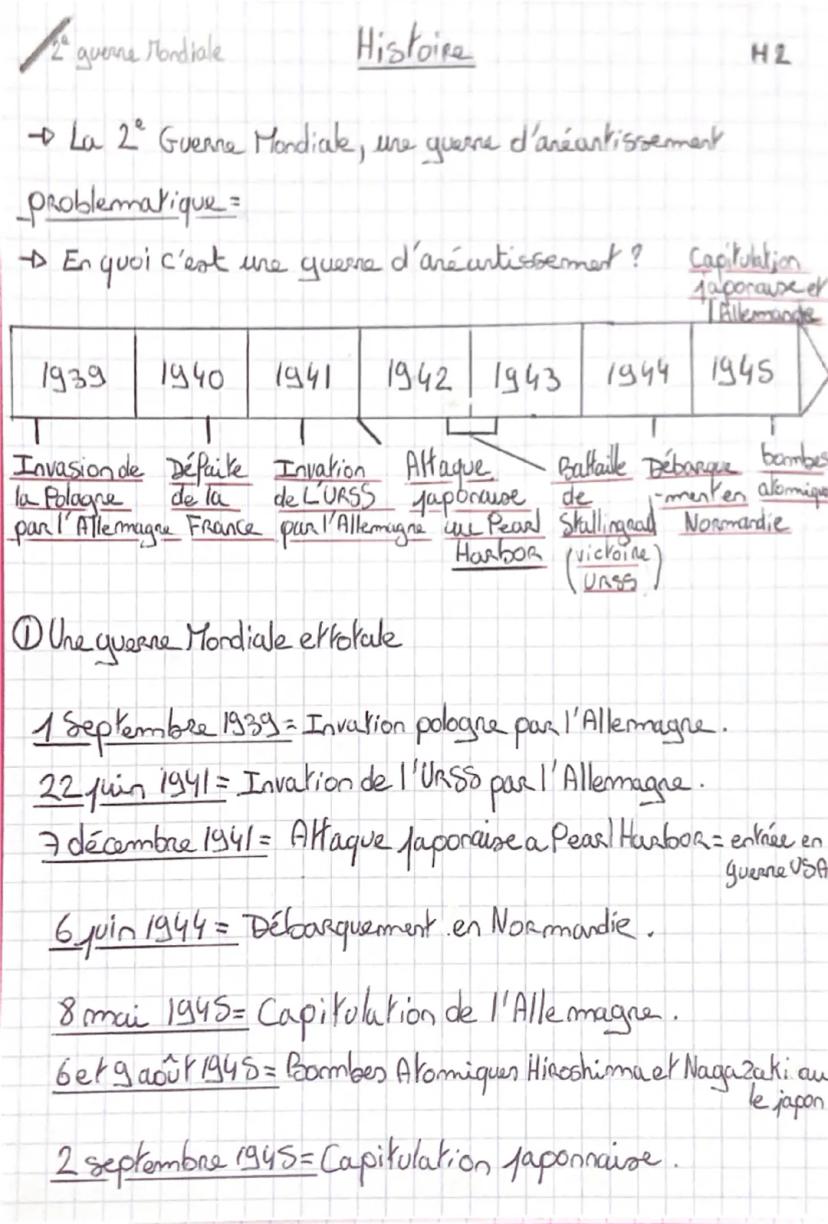 2e guerre Mondiale
Histoire
H2
→ La 2e Guerre Mondiale, une guerre d'anéantissement
problematique =
→ En quoi c'est une guerre d'anéantissement ?
Capitulation
japonaise et
l'Allemande
1939 1940 1941 1942 1943 1944 1945
Invasion de
la Pologne
par l'Allemagne
Défaite
de la
France
Invation
de L'URSS
par l'Allemagne
Attaque
japonaise
au Pearl
Harbor
Battaille
de
Stallingrad
(victoire
URSS)
Débarque
-ment en
Normandie
bombes
atomique
① Une guerre Mondiale et totale
1 Septembre 1939 = Invation pologne par l'Allemagne.
22 juin 1941 = Invation de l'URSS par l'Allemagne.
7 décembre 1941 = Attaque japonaise a Pearl Harbor = entrée en
guerre USA
6 juin 1944 = Débarquement en Normandie.
8 mai 1945 = Capitulation de l'Allemagne.
6 et 9 août 1945 = Bombes Atomiques Hiroshima et Nagazaki au
le japon
2 septembre 1945 = Capitulation japonnaise.